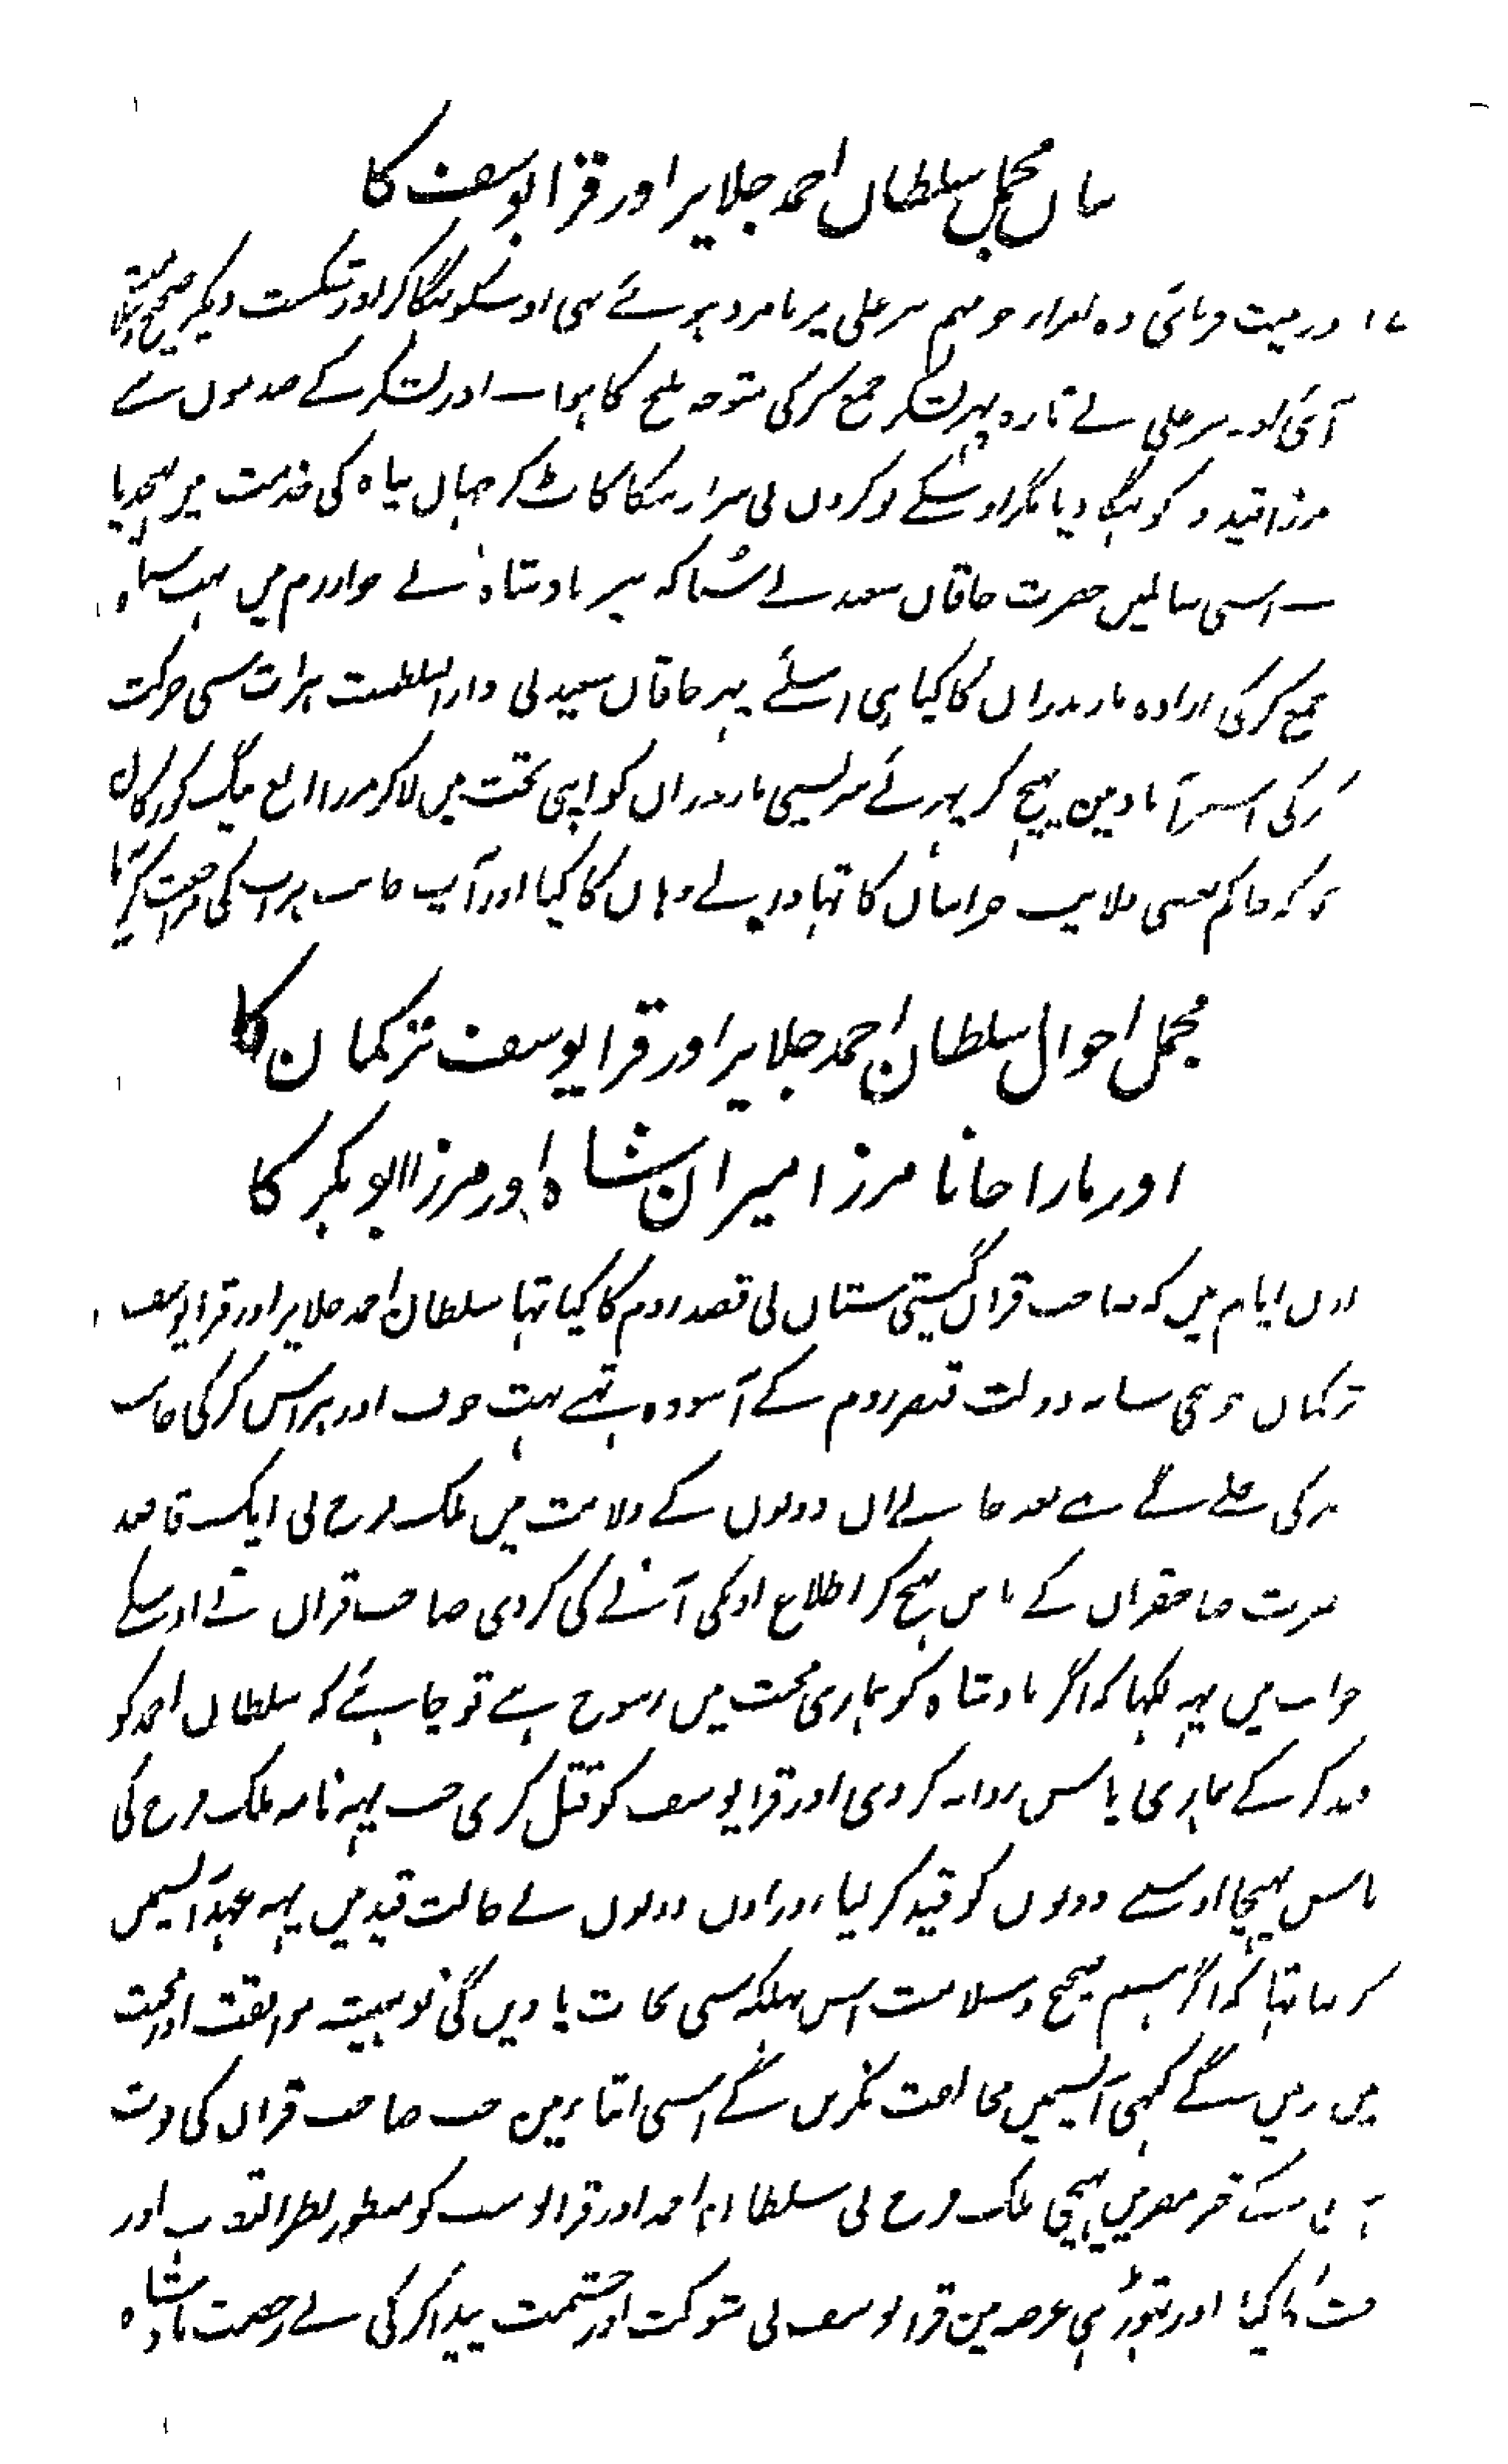 بیان مجمل سلطان احمد جلایر اور قرا یوسف کا
فرمائی وہ امراء جو مہم پیر علی پر نامزد ہوئے تھی اوسکو بھگا کر اور شکست دیکر صحیح
آئی اور پیر علی نے دوبارہ پھر لشکر جمع کرکی متوجہ بلخ کا ہوا اور لشکر کے صدموں سے
مرزا قیدو کو بھگا دیا مگر اوسکے نوکروں نی سر اوسکا کاٹ کر جہاں پناہ کی خدمت میں بھیجدیا
اسی سالمیں حضرت خاقان سعید نے سُنا کہ پیر بادشاہ نے خوارزم میں بہت سپاہ
جمع کرکی ارادہ مازندران کا کیا ہی اسلئے پھر خاقان سعید نی دار السلطنت ہرات سی حرکت
کرکی استرآباد مین پہنچ کر پھر نئے سر سی مازندران کو اپنی تحت میں لاکر مرزا الغ بیگ کو
کہ حاکم بعضی ولایت خراسان کا تہا والی وہاں کا کیا اور آپ جانب ہرات کی مراجعت
مجمل احوال سلطان احمد جلایر اور قرا یوسف ترکمان کا
اور مارا جانا مرزا میران شاہ اور مرزا ابو بکر کا
اون ایام میں کہ صاحب قران گیتی ستان نی قصد روم کا کیا تہا سلطان احمد جلایر اور قرا یوسف
ترکمان جو بیچ سایہ دولت قیصر روم کے آسودہ تہے بہت خوف اور ہراس کرکی جانب
مصر کی چلے گئے بعد جانے ان دونوں کے ولایت میں ملک فرح نی ایک قاصد
حضرت صاحبقران کے پاس بھیج کر اطلاع اونکی آنے کی کردی صاحب قران نے اوسکے
جواب میں یہہ لکہا کہ اگر بادشاہ کو ہماری محبت میں رسوخ ہے تو چاہئے کہ سلطان احمد کو
قید کرکے ہماری پاس روانہ کردی اور قرا یوسف کو قتل کری جب یہہ نامہ ملک فرح کی
پاس پہنچا اوسنے دونوں کو قید کر لیا اور اون دونوں نے حالت قید میں یہہ عہد آپسمیں
کر لیا تہا کہ اگر ہم صحیح و سلامت اس مہلکہ سی نجات پاویں گی تو ہمیشہ موافقت اور محبت
میں رہیں گے کبھی آپسمیں مخالفت نکریں گے اسی اثنا مین جب صاحب قران کی فوت
خبر مصر میں پہنچی ملک فرح نی سلطان احمد اور قرا یوسف کو منظور نظر التفات اور
کیا اور تھوڑی ہی عرصہ مین قرا یوسف نی شوکت اور حشمت پیدا کرکی بے رخصت بادشاہ